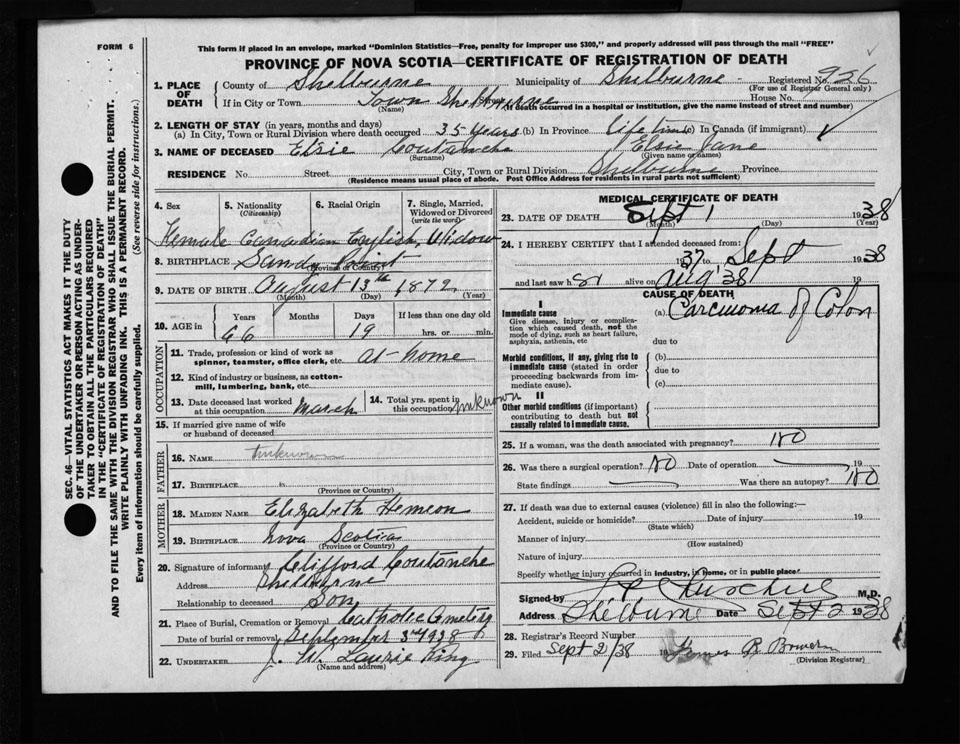 FORM 6
This form if placed in an envelope, marked "Dominion Statistics—Free, penalty for improper use $300," and properly addressed will pass through the mail "FREE"
PROVINCE OF NOVA SCOTIA—CERTIFICATE OF REGISTRATION OF DEATH
SEC. 46—VITAL STATISTICS ACT MAKES IT THE DUTY
OF THE UNDERTAKER OR PERSON ACTING AS UNDER-
TAKER TO OBTAIN ALL THE PARTICULARS REQUIRED
IN THE "CERTIFICATE OF REGISTRATION OF DEATH"
AND TO FILE THE SAME WITH THE DIVISION REGISTRAR WHO SHALL ISSUE THE BURIAL PERMIT.
WRITE PLAINLY WITH UNFADING INK. THIS IS A PERMANENT RECORD.
Every item of information should be carefully supplied. (See reverse side for instructions.)
1. PLACE OF DEATH
County of Shelburne Municipality of Shelburne Registered No. 926
(For use of Registrar General only)
If in City or Town Town Shelburne House No.
(Name) (If death occurred in a hospital or institution, give the name instead of street and number)
2. LENGTH OF STAY (in years, months and days)
(a) In City, Town or Rural Division where death occurred 35 years (b) In Province Life time (c) In Canada (if immigrant)
3. NAME OF DECEASED Elsie Coutanche Elsie Jane
(Surname) (Given name or names)
RESIDENCE No. Street City, Town or Rural Division Shelburne Province
(Residence means usual place of abode. Post Office Address for residents in rural parts not sufficient)
4. Sex 5. Nationality (Citizenship) 6. Racial Origin 7. Single, Married, Widowed or Divorced (write the word)
Female Canadian English Widow
8. BIRTHPLACE Sandy Point
(Province or Country)
9. DATE OF BIRTH August 13th 1872
(Month) (Day) (Year)
10. AGE in Years Months Days If less than one day old
66 19 hrs. or min.
OCCUPATION
11. Trade, profession or kind of work as spinner, teamster, office clerk, etc. at home
12. Kind of industry or business, as cotton-mill, lumbering, bank, etc.
13. Date deceased last worked at this occupation March
14. Total yrs. spent in this occupation unknown
15. If married give name of wife or husband of deceased
FATHER
16. NAME Unknown
17. BIRTHPLACE "
(Province or Country)
MOTHER
18. MAIDEN NAME Elizabeth Hemeon
19. BIRTHPLACE Nova Scotia
(Province or Country)
20. Signature of informant Clifford Coutanche
Address Shelburne
Relationship to deceased Son
21. Place of Burial, Cremation or Removal Catholic Cemetery
Date of burial or removal September 3rd 1938
22. UNDERTAKER J. W. Laurie King
(Name and address)
MEDICAL CERTIFICATE OF DEATH
23. DATE OF DEATH Sept 1 1938
(Month) (Day) (Year)
24. I HEREBY CERTIFY that I attended deceased from:
1937 to Sept 1938
and last saw her alive on Aug '38 19
CAUSE OF DEATH
I
Immediate cause
Give disease, injury or complica-
tion which caused death, not the
mode of dying, such as heart failure,
asphyxia, asthenia, etc
(a) Carcinoma of Colon
due to
Morbid conditions, if any, giving rise to
immediate cause (stated in order
proceeding backwards from im-
mediate cause).
(b)
due to
(c)
II
Other morbid conditions (if important)
contributing to death but not
causally related to immediate cause.
25. If a woman, was the death associated with pregnancy? No
26. Was there a surgical operation? No Date of operation 19
State findings Was there an autopsy? No
27. If death was due to external causes (violence) fill in also the following:—
Accident, suicide or homicide? Date of injury 19
(State which)
Manner of injury
(How sustained)
Nature of injury
Specify whether injury occurred in industry, in home, or in public place
Signed by M.D.
Address Shelburne Date Sept 2 1938
28. Registrar's Record Number
29. Filed Sept 2/38 19 R Bower
(Division Registrar)